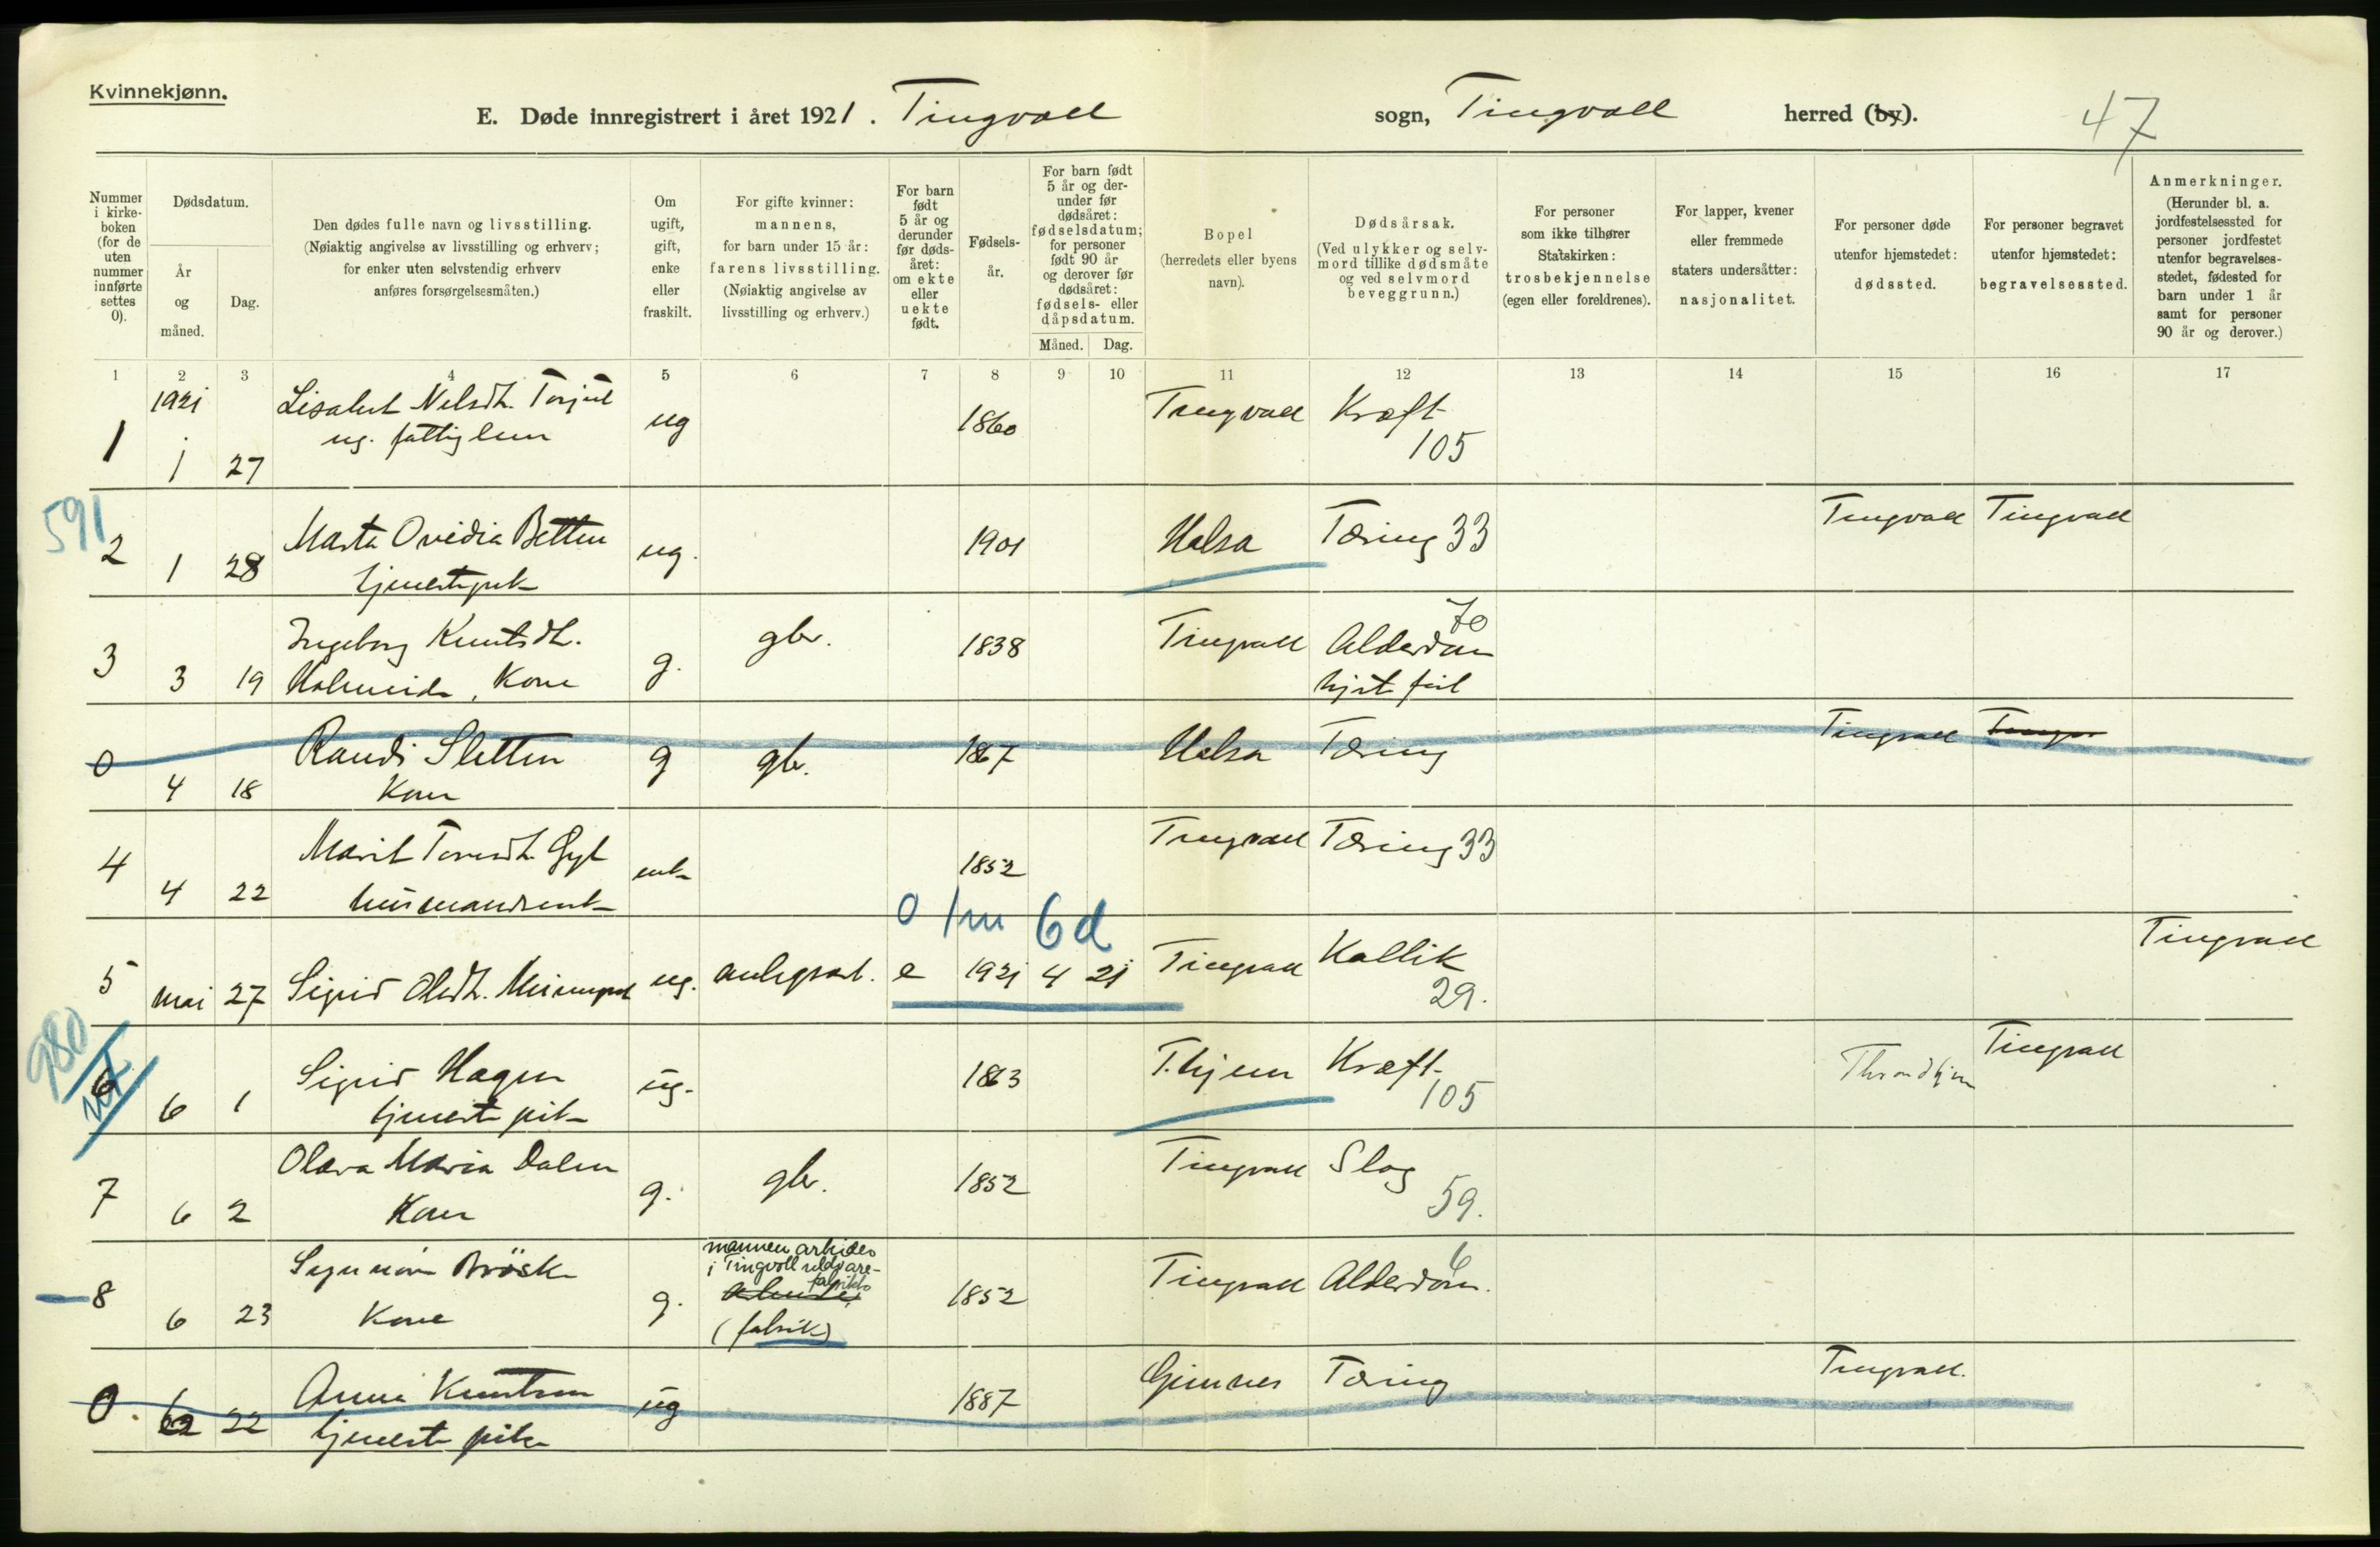 Kvinnekjønn.
E. Døde innregistrert i året 1921. Tingvoll sogn, Tingvoll herred (by).
47
Nummer i kirkeboken (for de uten nummer innførte settes 0).
Dødsdatum.
År og måned.
Dag.
Den dødes fulle navn og livsstilling.
(Nøiaktig angivelse av livsstilling og erhverv;
for enker uten selvstendig erhverv
anføres forsørgelsesmåten.)
Om ugift, gift, enke eller fraskilt.
For gifte kvinner:
mannens,
for barn under 15 år:
farens livsstilling.
(Nøiaktig angivelse av
livsstilling og erhverv.)
For barn født 5 år og derunder før dødsåret: om ekte eller uekte født.
Fødselsår.
For barn født
5 år og derunder før
dødsåret:
fødselsdatum;
for personer
født 90 år
og derover før
dødsåret:
fødsels- eller
dåpsdatum.
Måned. Dag.
Bopel
(herredets eller byens
navn).
Dødsårsak.
(Ved ulykker og selvmord tillike dødsmåte
og ved selvmord
beveggrunn.)
For personer
som ikke tilhører
Statskirken:
trosbekjennelse
(egen eller foreldrenes).
For lapper, kvener
eller fremmede
staters undersåtter:
nasjonalitet.
For personer døde
utenfor hjemstedet:
dødssted.
For personer begravet
utenfor hjemstedet:
begravelsessted.
Anmerkninger.
(Herunder bl. a.
jordfestelsessted for
personer jordfestet
utenfor begravelsesstedet, fødested for
barn under 1 år
samt for personer
90 år og derover.)
1 2 3 4 5 6 7 8 9 10 11 12 13 14 15 16 17
1921
1 1 27 Lisabet Nelsdt. Torjul ug 1860 Tingvoll Kræft
ug. fattiglem 105
591
2 1 28 Marta Ovidia Betten ug. 1901 Halsa Tæring 33 Tingvoll Tingvoll
tjenestpik
3 3 19 Ingeborg Knutsdt. g. gbr. 1838 Tingvoll Alderdom 70
Holmeide, Kone hjertefeil
0 4 18 Randi Sletten g gbr. 1867 Halsa Tæring Tingvoll
Kone
4 4 22 Marit Toresdt. Gyl enk 1852 Tingvoll Tæring 33
husmandsenk
0 1m 6d
5 mai 27 Sigrid Olsdt. ug. anlegsarb. e 1921 4 21 Tingvoll Kollik Tingvoll
29.
980
6 6 1 Sigrid Hagen ug. 1863 T.hjem Kræft Throndhjem Tingvoll
tjenestepik 105
7 6 2 Olava Maria Dalen g. gbr. 1852 Tingvoll Slag
Kone 59.
8 6 23 Brøsk g. mannen arbider 1852 Tingvoll Alderdom. 6
i Tingvoll uldvare-
fabrikk
Kone (fabrik)
0 6 22 Anne Knutsen ug 1887 Gimnes Tæring Tingvoll.
tjenestepike